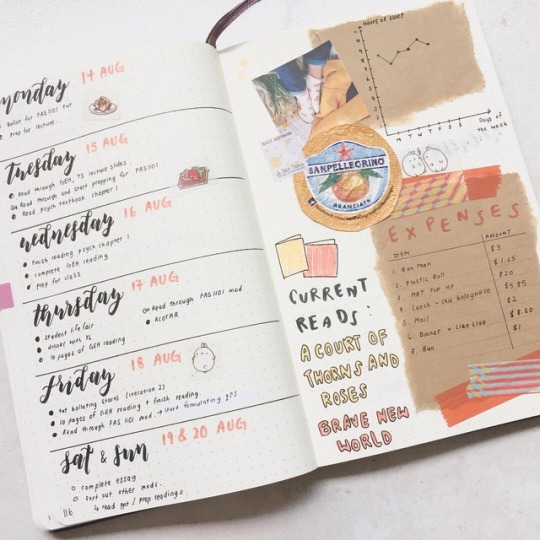 monday 14 AUG
Ballot for FAS1101 tut
Prep for lecture
Tuesday 15 AUG
Read through GEM, TS lecture slides
Read through and start prepping for FAS1101
Read psych textbook chapter 1
wednesday 16 AUG
Finish reading psych chapter 1
complete GEM reading
Prep for class
thursday 17 AUG
Student life fair
dinner with YL
10 pages of GEM reading
Read through FAS1101 mod
ACOTAR
friday 18 AUG
tut balloting starts (iteration 2)
10 pages of GEM reading + finish reading
Read through FAS1101 mod → start formulating
sat & sun 19 & 20 AUG
complete essay
Sort out other mods
↳ read ppt / prep readings
116
HOURS OF SLEEP
M T W T F S S
Days of the week
SANPELLEGRINO
ARANCIATA
CURRENT
READS:
A COURT OF
THORNS AND
ROSES
BRAVE NEW
WORLD
EXPENSES
ITEM AMOUNT
1. Ban Mian $3
2. Plastic Roll $1.65
3. MRT TOP UP $20
4. Lunch - chic bolognose $5.85
5. Mail $2
6. Dinner + Liao Liao $8.50
7. Bun $1